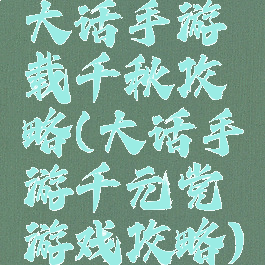 大话手游
载千秋攻
略(大话手
游千元党
游戏攻略)